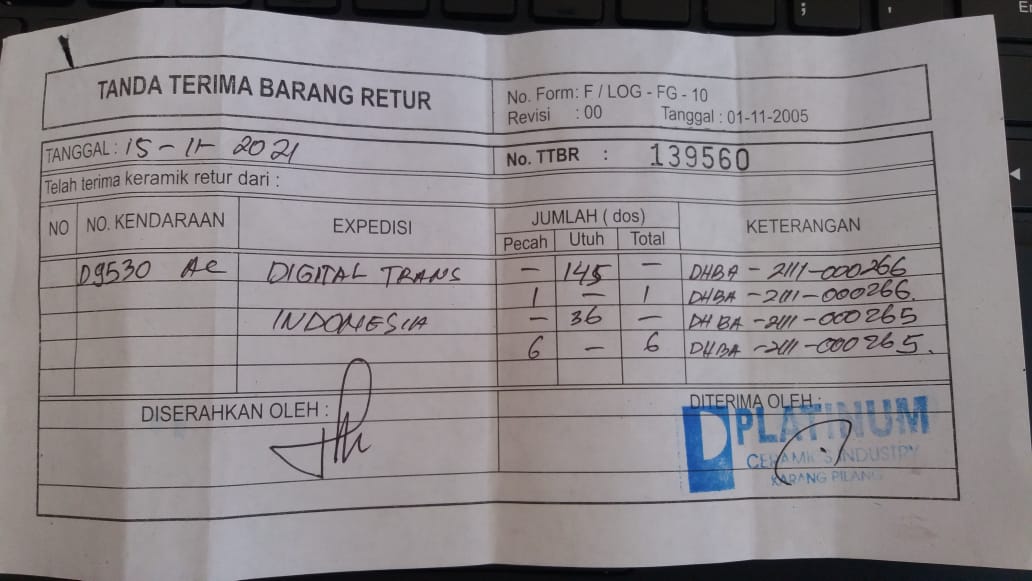 TANDA TERIMA BARANG RETUR
No. Form: F / LOG - FG - 10
Revisi : 00 Tanggal : 01-11-2005
TANGGAL : 15 - 11 - 2021
No. TTBR : 139560
Telah terima keramik retur dari :
NO NO. KENDARAAN EXPEDISI JUMLAH ( dos) KETERANGAN
Pecah Utuh Total
D9530 AE DIGITAL TRANS - 145 - DHBA - 2111-000266
1 - 1 DHBA - 2111-000266.
INDONESIA - 36 - DHBA - 2111-000265
6 - 6 DHBA - 2111-000265.
DISERAHKAN OLEH : DITERIMA OLEH :
PLATINUM
CERAMICS INDUSTRY
KARANG PILANG